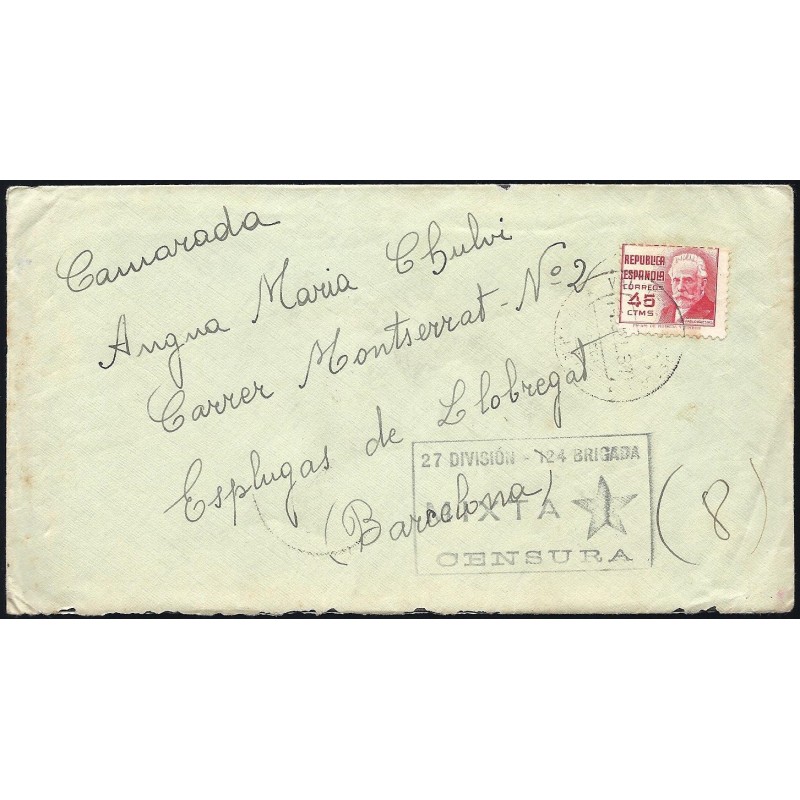 Camarada
Angua Maria Chulvi
Carrer Montserrat - Nº 2
Esplugas de Llobregat
(Barcelona)
(8)
REPUBLICA
ESPAÑOLA
CORREOS
45
CTMS
27 DIVISIÓN - 124 BRIGADA
MIXTA
CENSURA